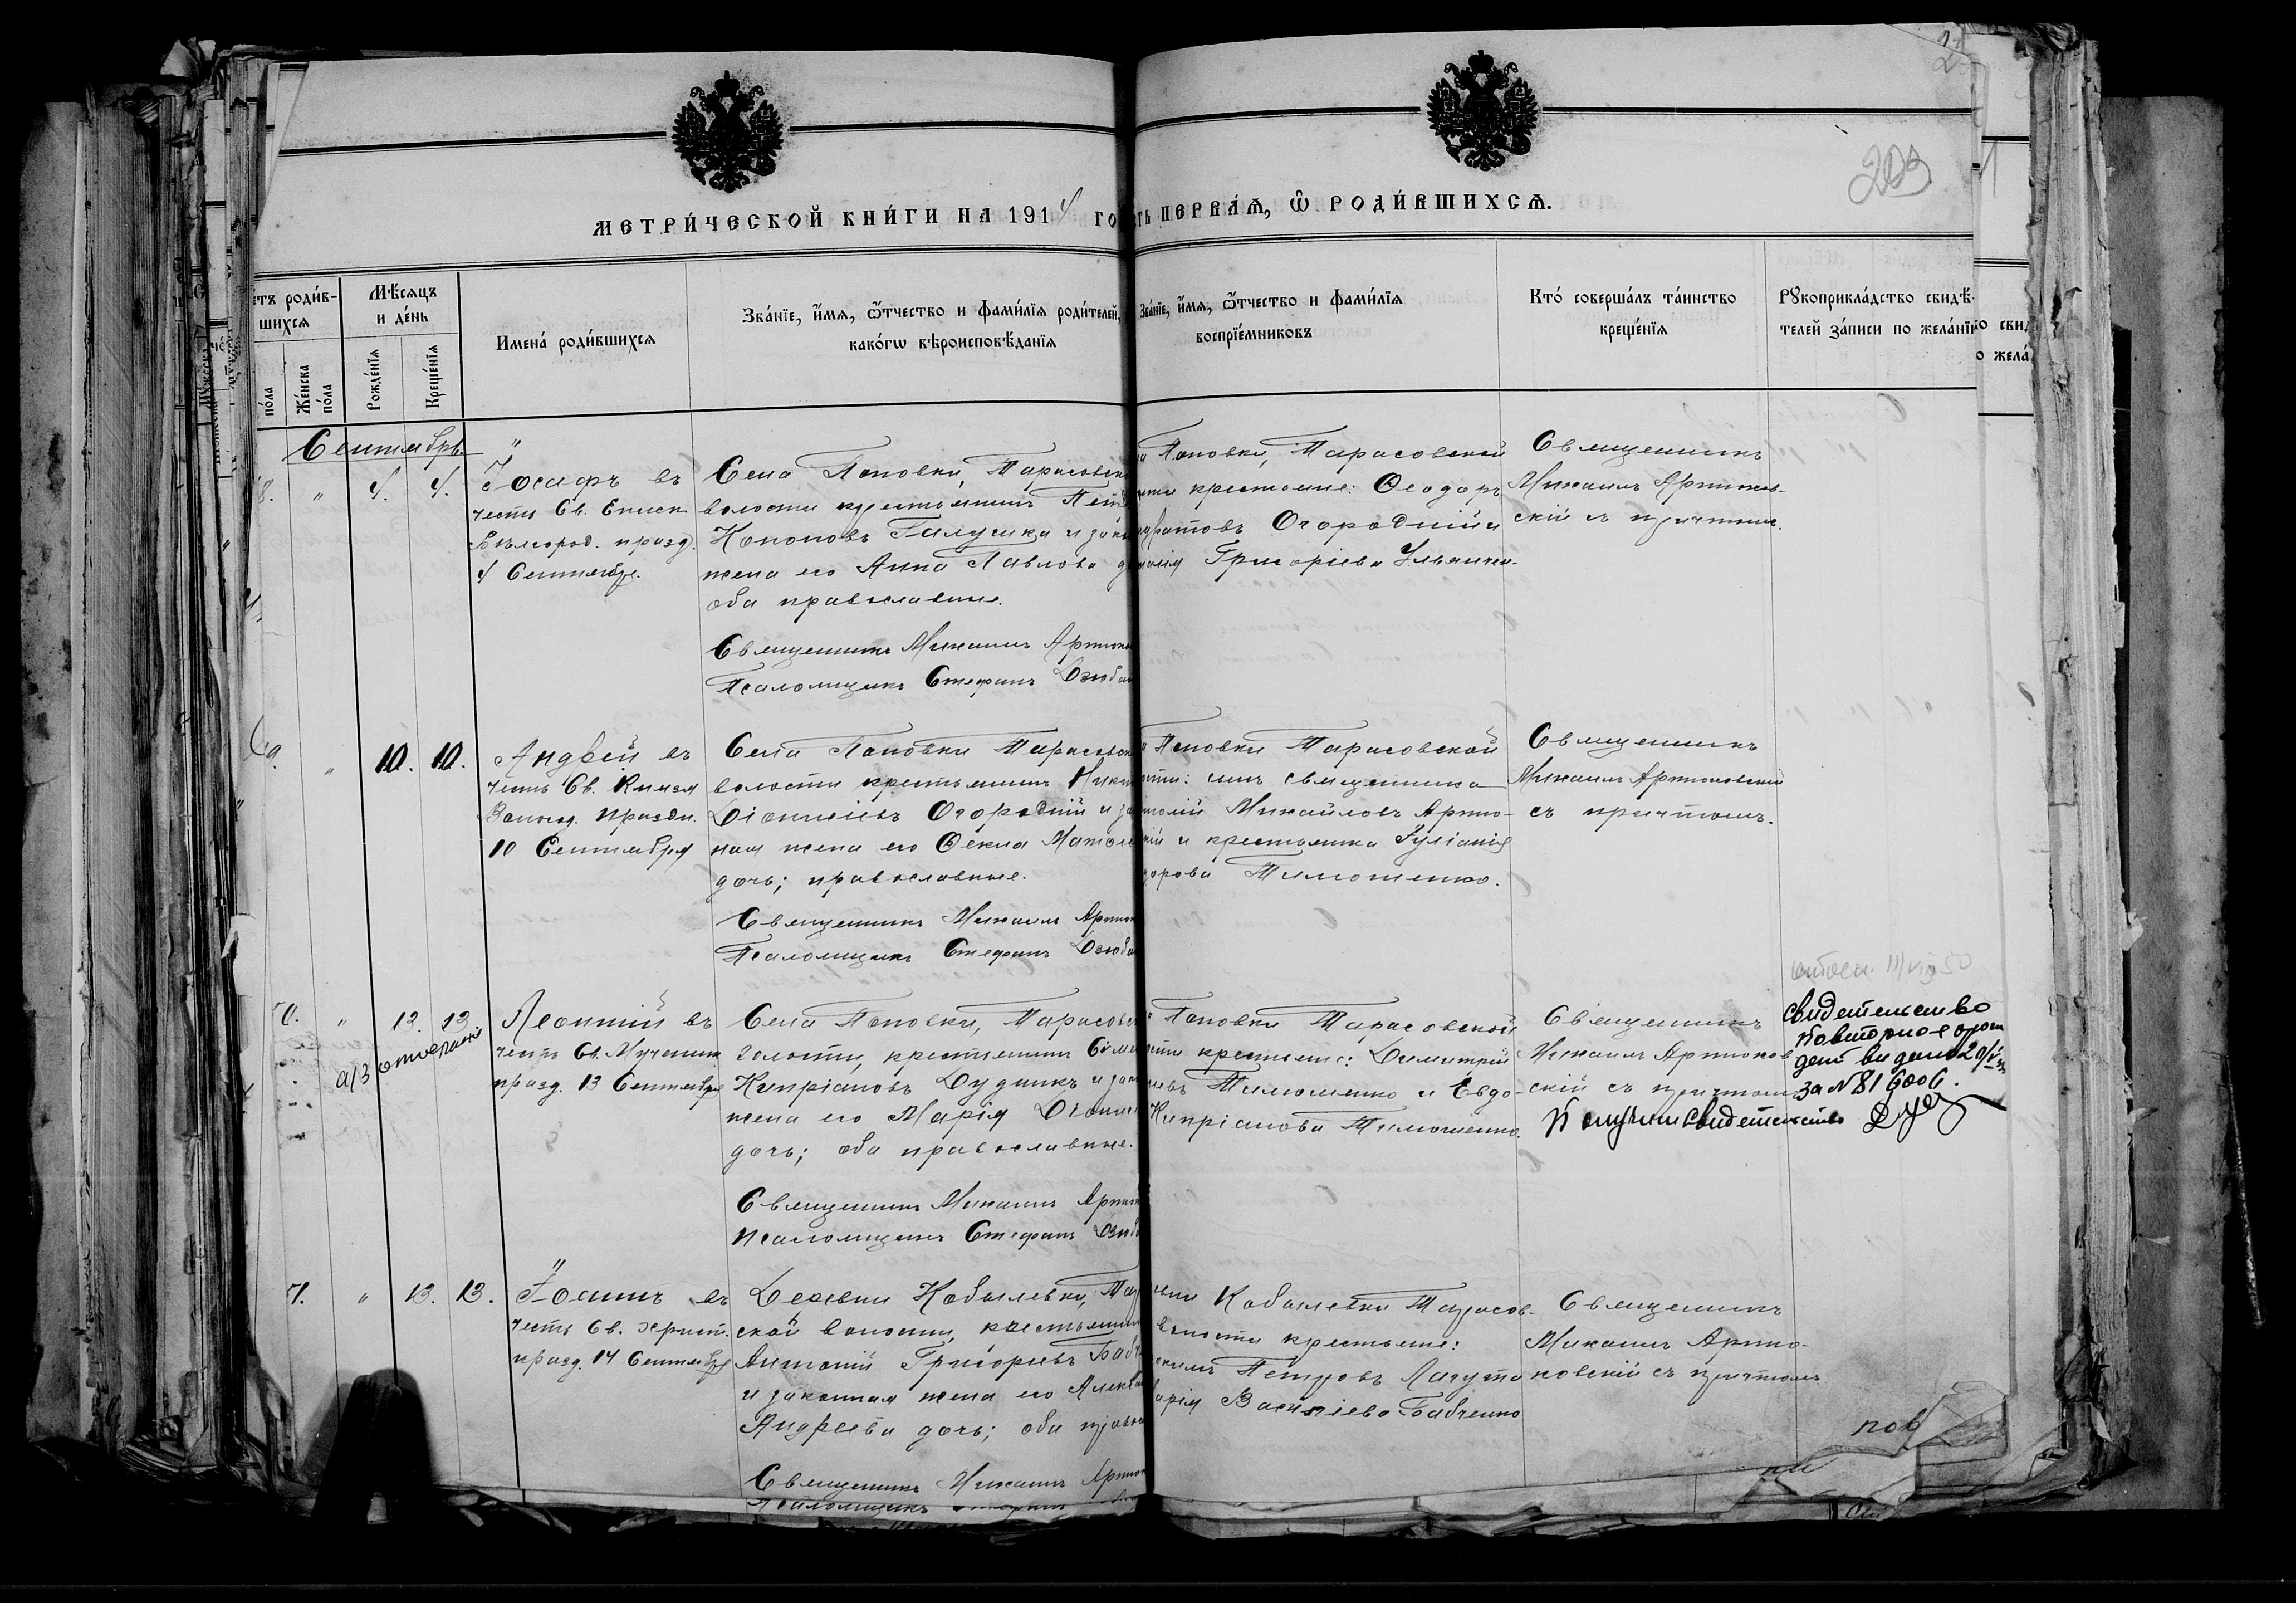 203
МЕТРИ́ЧЕСКОЙ КНИ́ГИ НА 1914 ГО
ТЬ ПЕРВАѦ, Ѡ РОДИ́ВШИХСѦ.
етъ роди́в-
шихсѧ
по́ла
Же́нска
по́ла
Мѣ́сѧцъ
и де́нь
Рожде́нїѧ
Креще́нїѧ
Имена́ роди́вшихсѧ
Зва́нїе, и́мѧ, ѻ́тчество и фами́лїѧ роди́телей,
како́гѡ вѣроисповѣ́данїѧ
Зва́нїе, и́мѧ, ѻ́тчество и фами́лїѧ
воспрїе́мниковъ
Кто́ соверша́лъ та́инство
креще́нїѧ
Рꙋкоприкла́дство свидѣ́-
телей за́писи по жела́нїю
о жела
Сентябрь
8. " 4. 4.
Іосафъ въ
честь Св. Еписк.
Бѣлгород. празд.
4 Сентября.
Села Поповки, Тарасовск
волости крестьянинъ Пет
Кононовъ Галушка и зак
жена его Анна Павлова д
оба православные.
Священникъ Михаилъ Артюхов
Псаломщикъ Стефанъ Дзюба
Поповки, Тарасовской
сти крестьяне: Ѳеодоръ
дратовъ Огородній и
талія Григоріева Ульянч
Священникъ
Михаилъ Артюхов-
скій съ причтомъ.
9. " 10. 10.
Андрей въ
честь Св. Князя
празд.
10 Сентября
Села Поповки Тарасовск
волости крестьянинъ Ники
Діонисіевъ Огородній и за
ная жена его Ѳекла
дочь; православные.
Священникъ Михаилъ Артюх
Псаломщикъ Стефанъ Дзюба
Поповки Тарасовской
сти: сынъ священника
толій Михайловъ Артю-
кій и крестьянка Іуліанія
дорова Тимошенко.
Священникъ
Михаилъ Артюховскій
съ причтомъ.
70. " 13. 13
а/з отобрано
Леонтій въ
честь Св. Мученик
празд. 13 Сентября
Села Поповки, Тарасовск
волости, крестьянинъ Симе
Кипріановъ Дудникъ и зак
жена его Марія Діонис
дочь; оба православные.
Священникъ Михаилъ Артюх
Псаломщикъ Стефанъ Дзюба
Поповки Тарасовской
сти крестьяне: Димитрій
въ Тимошенко и Евдо-
Кипріанова Тимошенко.
Священникъ
Михаилъ Артюхов
скій съ причтомъ
свидетельство
повторное о рож
дении выдано 20/
за №
Получил свидетельство
71. " 13. 13.
Іоаннъ въ
честь Св. Христ.
празд. 14 Сентября
Деревни Кобылевки, Тар
ской волости, крестьянинъ
Антоній Григорьевъ Бабч
и законная жена его Алекса
Андреева дочь; оба право
Священникъ Михаилъ Артюх
Псаломщикъ Стефанъ
вни Кобылевки Тарасов-
волости крестьяне:
кимъ Петровъ Лагута
арія Василіева Бабченко
Священникъ
Михаилъ Артю-
ховскій съ причтомъ
пов